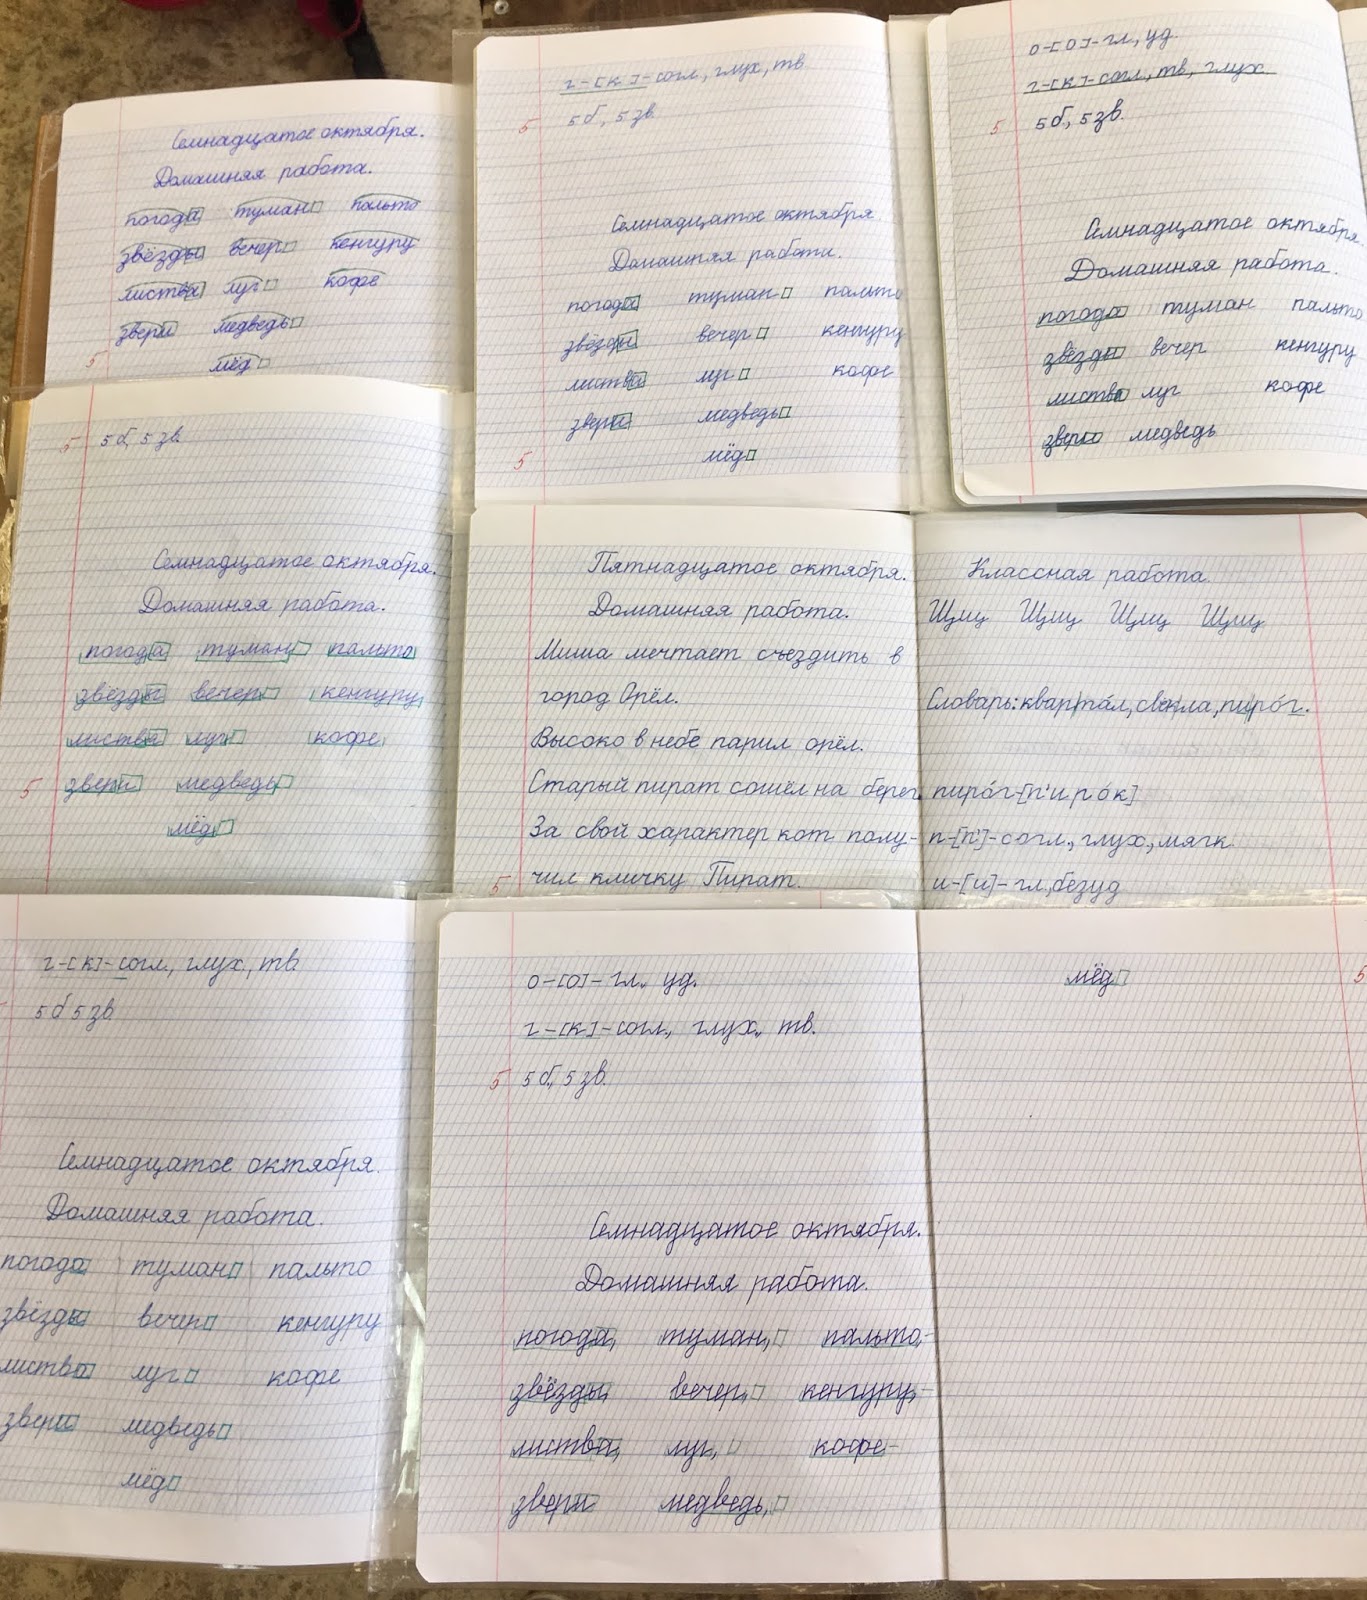 Семнадцатое октября.
Домашняя работа.
погода туман пальто
звёзды вечер кенгуру
листва луг кофе
звери медведь
5 мёд
г-[к]-согл., глух., тв.
5 5б, 5 зв.
Семнадцатое октября.
Домашняя работа.
погода туман пальто
звёзды вечер кенгуру
листва луг кофе
звери медведь
5 мёд
о-[о]-гл., уд.
г-[к]-согл., тв., глух.
5 5б., 5 зв.
Семнадцатое октября.
Домашняя работа.
погода туман пальто
звёзды вечер кенгуру
листва луг кофе
звери медведь
5 5б, 5 зв.
Семнадцатое октября.
Домашняя работа.
погода туман пальто
звёзды вечер кенгуру
листва луг кофе
5 звери медведь
мёд
Пятнадцатое октября.
Домашняя работа.
Миша мечтает съездить в
город Орёл.
Высоко в небе парил орёл.
Старый пират сошёл на берег.
За свой характер кот полу-
5 чил кличку Пират.
Классная работа.
Щщц Щщц Щщц Щщц
Словарь: квартал, свёкла, пирóг.
пирóг-[п'ирóк]
п-[п']-согл., глух., мягк.
и-[и]-гл., безуд
г-[к]-согл., глух., тв.
5б 5 зв
Семнадцатое октября.
Домашняя работа.
погода туман пальто
звёзды вечер кенгуру
листва луг кофе
звери медведь
мёд
о-[о]-гл., уд.
г-[к]-согл., глух., тв.
5 5б., 5 зв.
Семнадцатое октября.
Домашняя работа.
погода, туман, пальто,-
звёзды, вечер, кенгуру,-
листва, луг, кофе-
звери медведь,
мёд 5